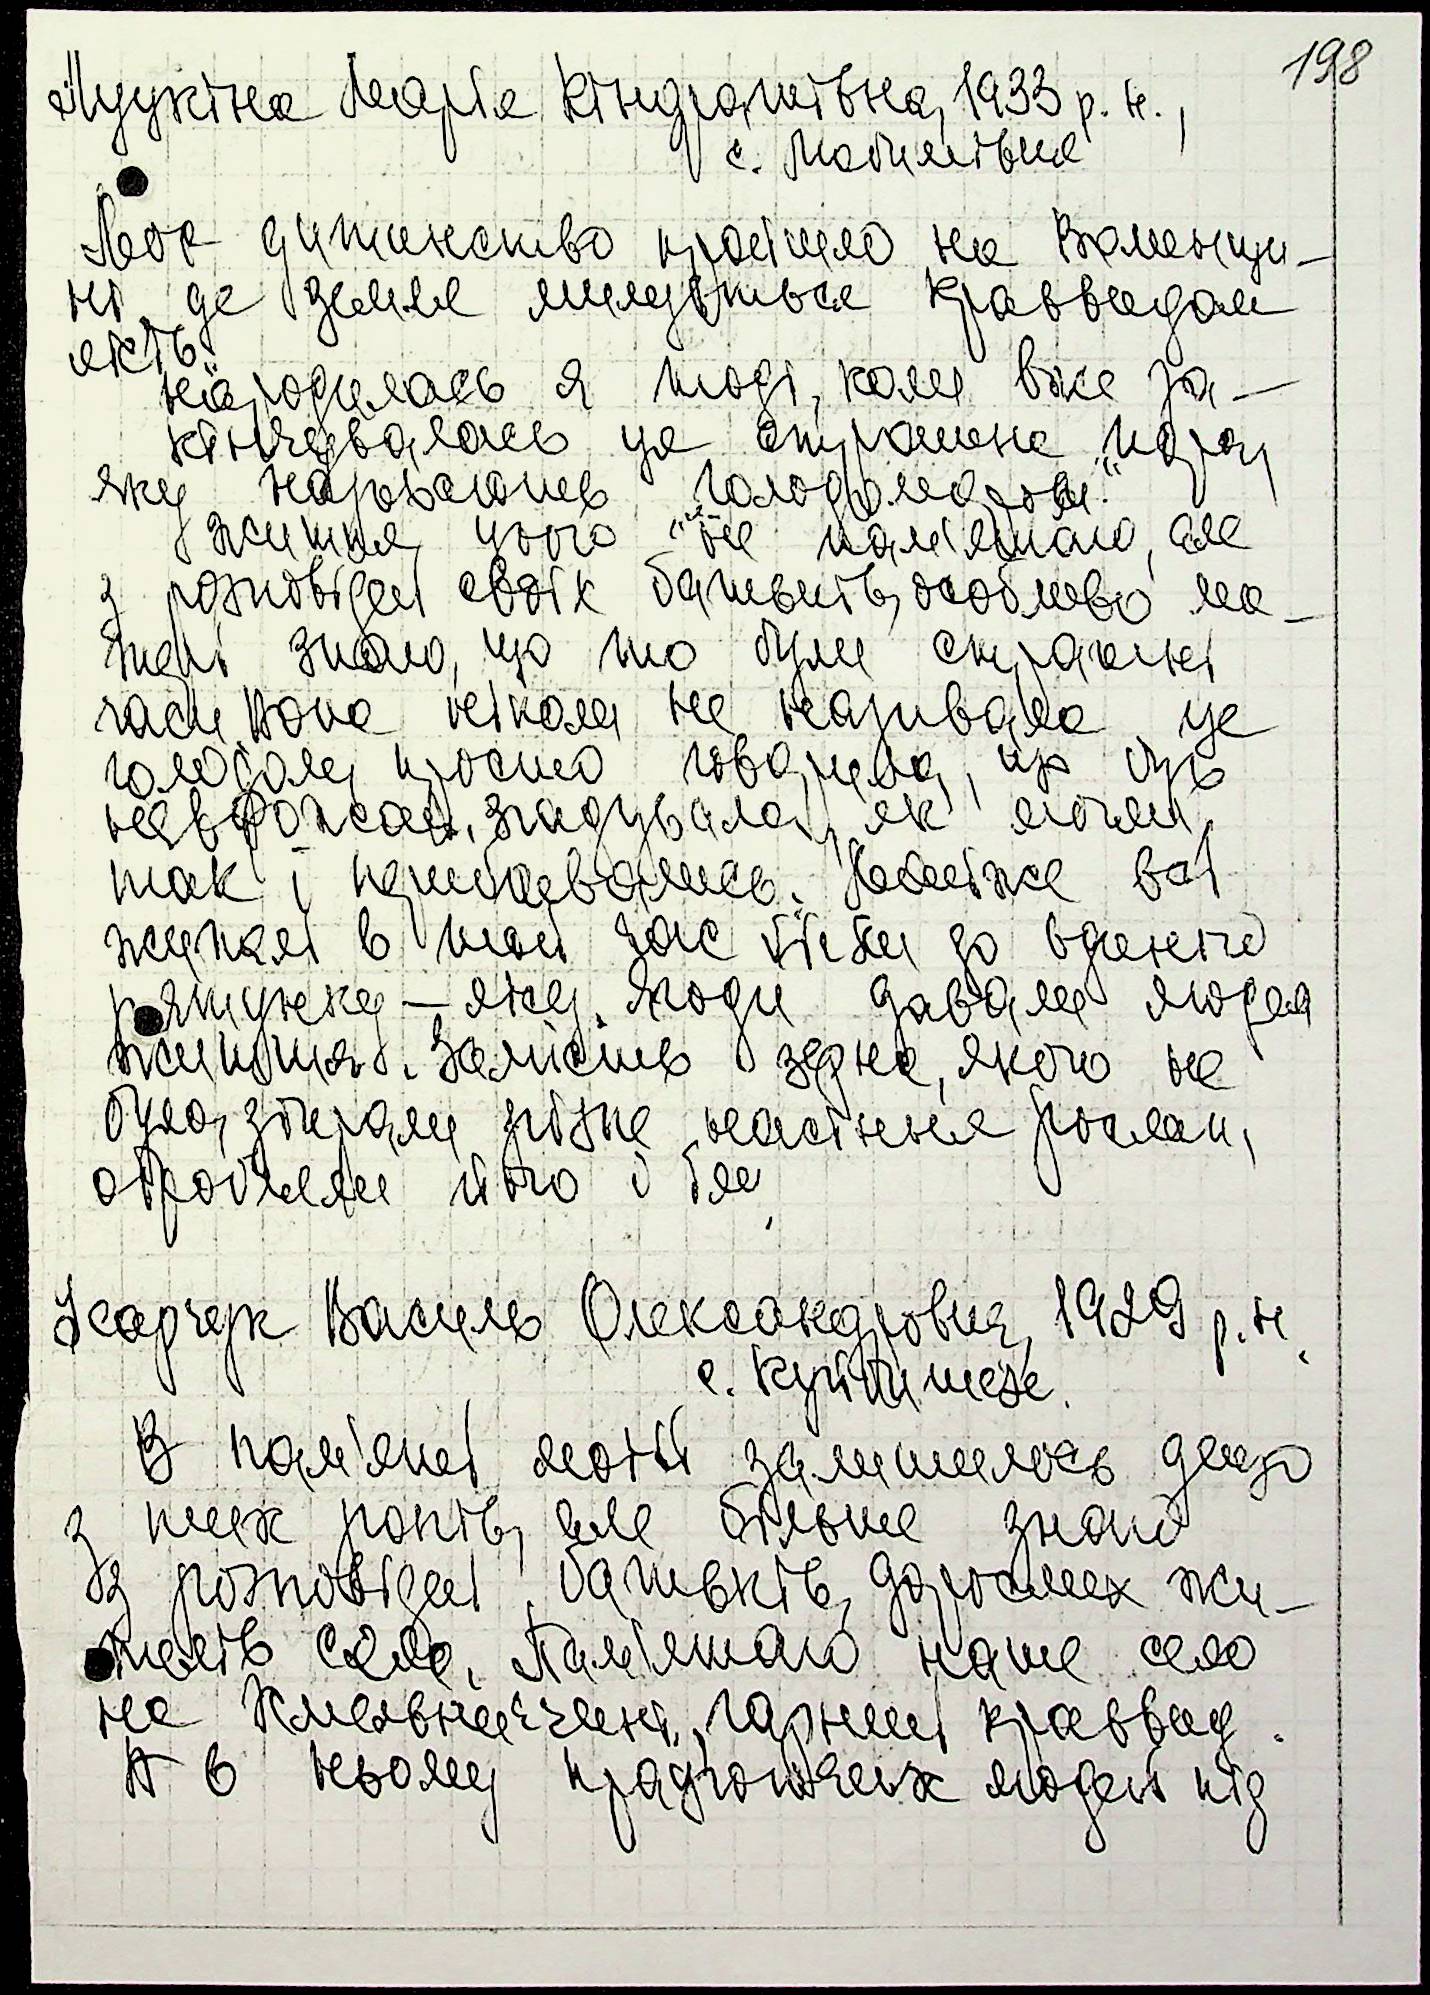 198
Марія Кіндратівна, 1933 р. н.,
с.
Моє дитинство пройшло на Вінничи-
ні, де земля милується краєвидом
лісів.
Народилась я тоді, коли вже за-
кінчувалась ця страшна пора,
яку називають "голодомором".
Життя цього не пам'ятаю, але
з розповідей своїх батьків, особливо ма-
тері знаю, що то були страшні
часи. Вона ніколи не називала це
голодом, просто говорила, що був
неврожай, згадувала, як могли,
так і перебивались. Майже всі
жителі в той час йшли до єдиного
рятунку — лісу. Ягоди давали людям
життя. Замість зерна, якого не
було, збирали різне насіння рослин,
обробляли його і їли.
Василь Олександрович, 1929 р. н.
с.
В пам'яті моїй залишилось дещо
з тих років, але більше знаю
із розповідей батьків, дорослих жи-
телів села. Пам'ятаю наше село
на Хмельниччині, гарний краєвид.
А в ньому працьовитих людей під